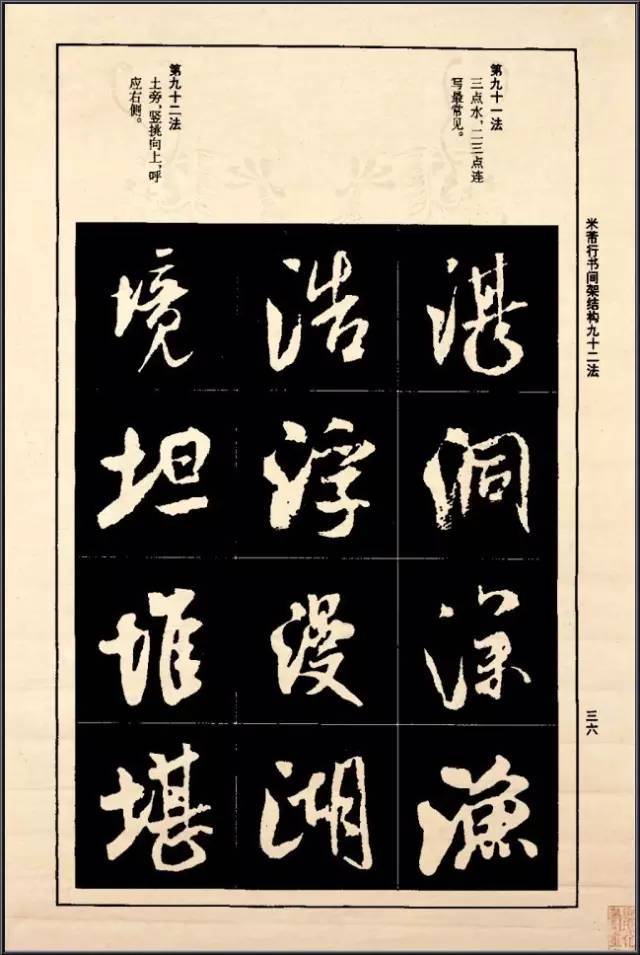 米芾行书间架结构九十二法
三六
第九十一法
三点水，二三点连
写最常见。
第九十二法
土旁，竖挑向上，呼
应右侧。
湛洞深漁
浩浮漫湖
境坦堆堪